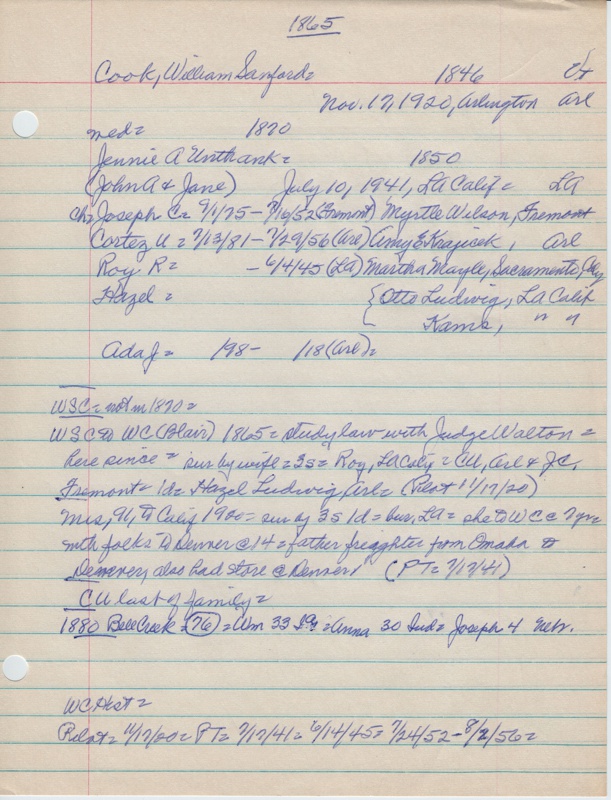 1865
Cook, William Sanford= 1846 Vt
Nov. 17, 1920, Arlington Arl
med= 1870
Jennie A Unthank= 1850
(John A & Jane) July 10, 1941, LA Calif= LA
ch= Joseph C= 9/1/75- 7/16/52 (Fremont) Myrtle Wilson, Fremont
Cortez U= 7/13/81-7/29/56 (Arl) Amy E Krajicek, Arl
Roy R= -6/4/45 (LA) Martha Mayle, Sacramento,
Hazel= { Otto Ludwig, LA Calif
Kams, " "
Ada J= 198- 1/18 (Arl)=
WSC= not m 1870=
WSC to WC (Blair) 1865= study law with Judge Walton=
here since= sur by wife= 3s= Roy, LA Calif= CU, Arl & J C,
Fremont= 1d= Hazel Ludwig, Arl= (Pilot 11/17/20)
Mrs, U, to Calif 1900= sur by 3s 1d= bur, LA= she to WC @ 7 yrs
with folks to Denver @ 14= father freighter from Omaha to
Denever, also had store @ Denver' (PT= 7/17/41)
CU last of family=
1880 Bell Creek= (76)= Wm 33 = Anna 30 Ind= Joseph 4 Neb.
WC Hist=
Pilot= 11/17/20= PT= 7/17/41= 6/14/45= 7/24/52-8/2/56=